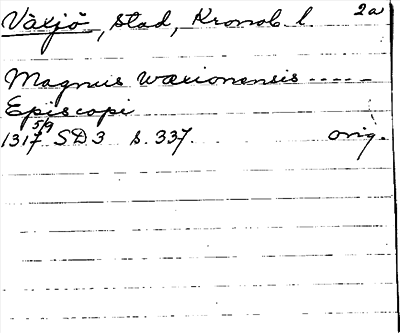 Växjö, Stad, Kronob. l. 2a
Magnus wexionensis -----
Episcopi
1317 5/9 SD 3 s. 337. orig.